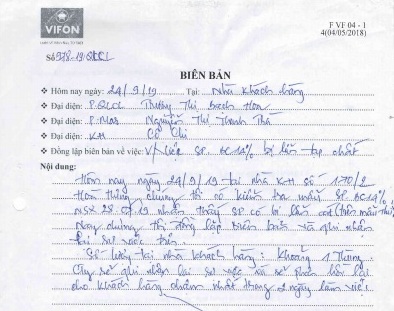 VIFON
F VF 04 - 1
4(04/05/2018)
Số 578.19/QLCL
BIÊN BẢN
❖ Hôm nay ngày: 24/9/19 Tại: Nhà khách hàng
❖ Đại diện: P.QLCL Trương Thị Bạch Hoa
❖ Đại diện: P.Mar Nguyễn Thị Thanh Thà
❖ Đại diện: KH Cô Chi
❖ Đồng lập biên bản về việc: V/v SP BC 14% bị lẫn tạp chất
Nội dung:
Hôm nay ngày 24/9/19 tại nhà KH số 170/2
chúng tôi có kiểm tra mẫu SP BC14%,
NSX 25.07.19 nhận thấy SP có bị lẫn
Nay chúng tôi đồng lập biên bản và ghi nhận
lại sự việc trên.
Số lượng tại nhà khách hàng: Khoảng 1 Thùng.
Cty sẽ ghi nhận lại sự việc và sẽ phản hồi lại
cho khách hàng chậm nhất trong 2 ngày làm việc